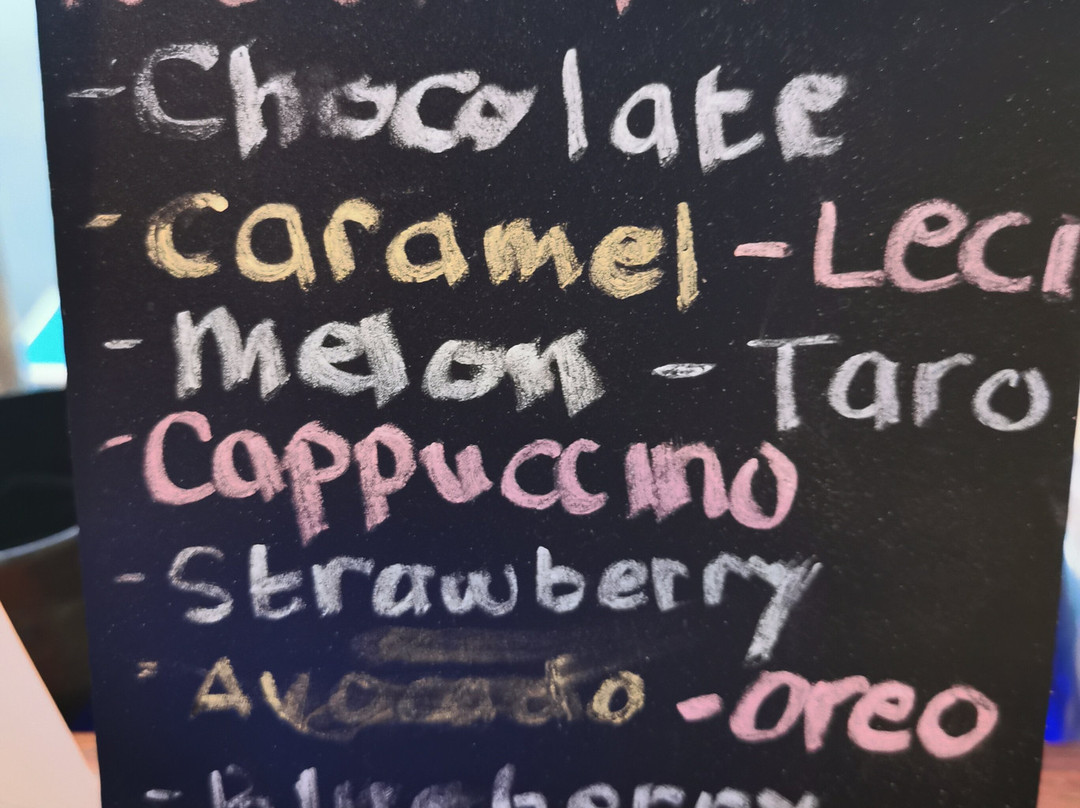 - Chocolate
- Caramel - Leci
- Melon - Taro
- Cappuccino
- Strawberry
- Avocado - Oreo
- Blueberry